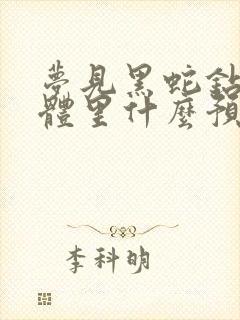 夢見黑蛇鉆
體里什麼預
李科明